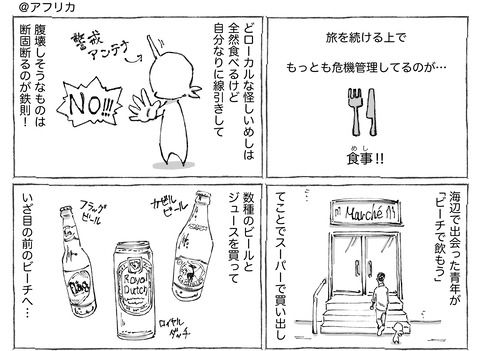 @アフリカ
旅を続ける上で
もっとも危機管理してるのが…
めし
食事!!
どローカルな怪しいめしは
全然食べるけど
自分なりに線引きして
警戒
アンテナ
NO!!!
腹壊しそうなものは
断固断るのが鉄則!
海辺で出会った青年が
「ビーチで飲もう」
てことでスーパーで買い出し
Marché
数種のビールと
ジュースを買って
カゼルビール
フラッグビール
Royal
Dutch
ロイヤル
ダッチ
いざ目の前のビーチへ…